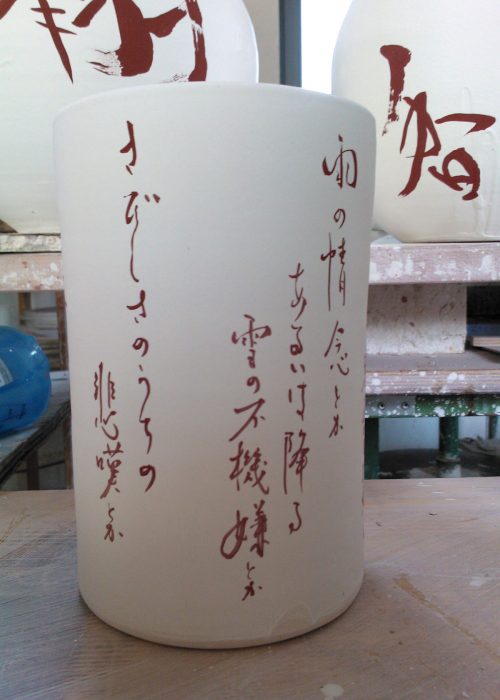 雨の情念とか
あるいは降る
雪の不機嫌とか
さびしさのうちの
悲嘆とか